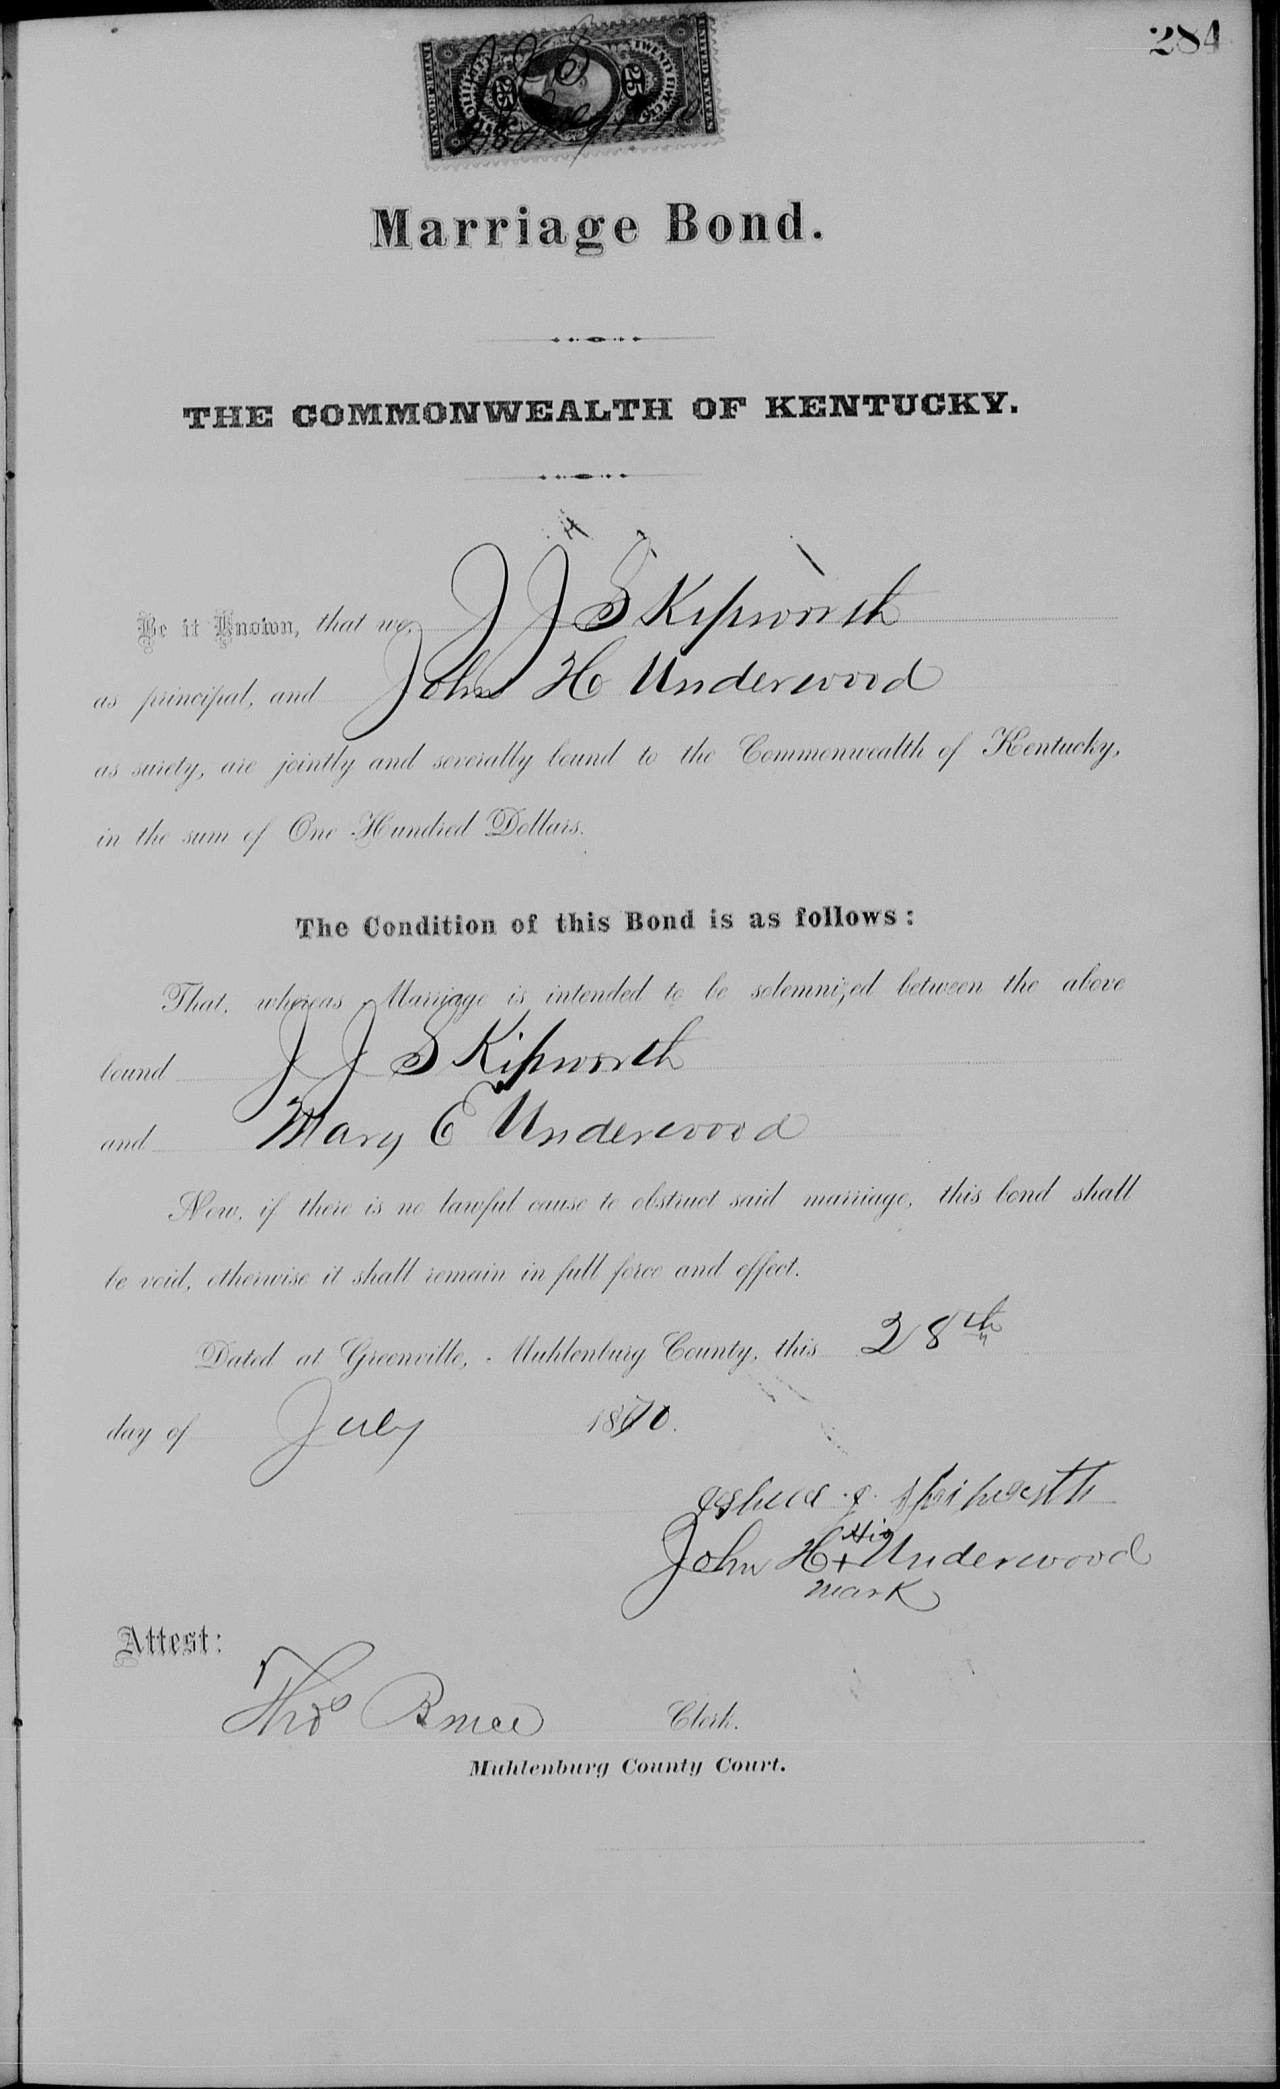 284
UNITED STATES
TWENTY FIVE CTS
25
25
INTER. REVENUE
J J S
28 July 1870
Marriage Bond.
THE COMMONWEALTH OF KENTUCKY.
Be it Known, that we, J J Skipworth
as principal, and John H Underwood
as surety, are jointly and severally bound to the Commonwealth of Kentucky,
in the sum of One Hundred Dollars.
The Condition of this Bond is as follows:
That, whereas Marriage is intended to be solemnized between the above
bound J J Skipworth
and Mary E Underwood
Now, if there is no lawful cause to obstruct said marriage, this bond shall
be void, otherwise it shall remain in full force and effect.
Dated at Greenville, Muhlenburg County, this 28th
day of July 1870.
J. Skipworth
His
John H + Underwood
mark
Attest:
Thos Bruce Clerk.
Muhlenburg County Court.